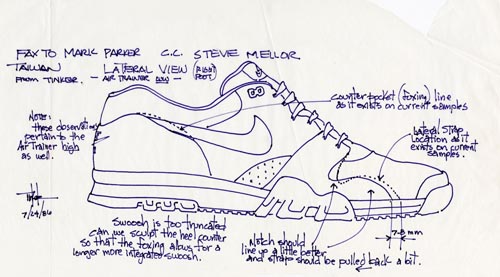 FAX TO MARK PARKER C.C. STEVE MELLOR
TAIWAN LATERAL VIEW (RIGHT FOOT)
FROM TINKER. - AIR TRAINER LOW -
counter pocket (foxing) line
as it exists on current samples
NOTE:
these observations
pertain to the
Air Trainer high
as well.
Lateral strap
Location as it
exists on current
samples.
7/24/86
7-8 mm
Swoosh is too truncated
can we sculpt the heel counter
so that the foxing allows for a
longer more integrated swoosh.
Notch should
line up a little better
and strap should be pulled back a bit.